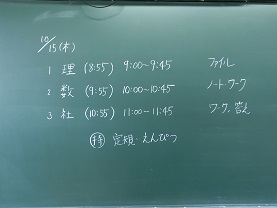 10/15(木)
1 理 (8:55) 9:00~9:45 ファイル
2 数 (9:55) 10:00~10:45 ノート・ワーク
3 社 (10:55) 11:00~11:45 ワーク、答え
持 定規・えんぴつ